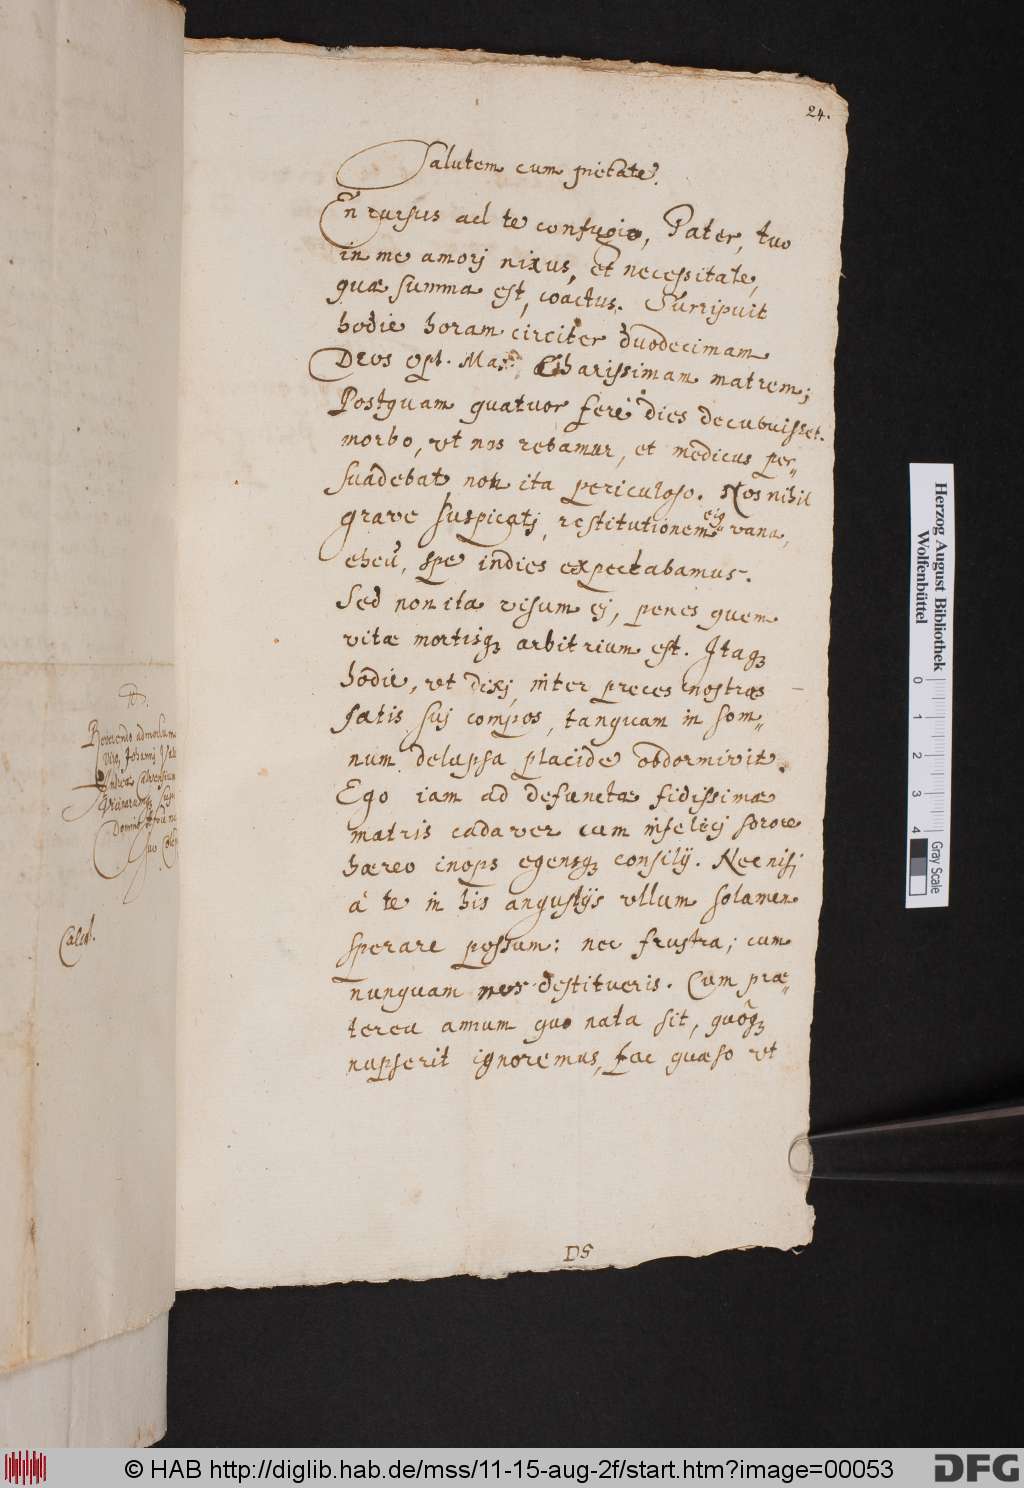 24.
Salutem cum pietate.
En rursus ad te confugio, Pater, tuo
in me amorj nixus, et necessitate,
quæ summa est, coactus. Surripuit
hodie horam circiter duodecimam
Deus Opt. Max. Charissimam matrem;
Postquam quatuor ferè dies decubuisset
morbo, vt nos rebamur, et medicus per-
suadebat non ita periculoso. Nos nihil
grave suspicatj, restitutionem eiq vana,
eheu, spe indies expectabamus.
Sed non ita visum ej, penes quem
vitæ mortisq arbitrium est. Itaq
hodie, vt dixj, inter preces nostras
satis suj compos, tanquam in som-
num delapsa placide obdormivit.
Ego iam ad defunctæ fidissimæ
matris cadaver cum infelicj sorore
hæreo inops egensq consilij. Nec nisj
à te in his angustijs vllum solamen
sperare possum: nec frustra; cum
nunquam nos destitueris. Cum præ-
terea annum quo nata sit, quôq
nupserit ignoremus, fac quæso vt
DS
Reverendo admodum
Viro, Johannj Val
Andreæ
Domino
suo
Calw.
Herzog August Bibliothek
Wolfenbüttel
0 1 2 3 4
Gray Scale
© HAB http://diglib.hab.de/mss/11-15-aug-2f/start.htm?image=00053
DFG